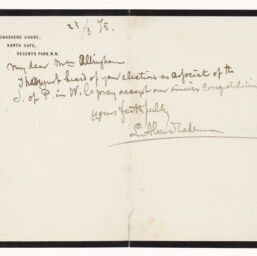 23/3/75.
TOWNSHEND HOUSE,
NORTH GATE,
REGENTS PARK. N.W.
My dear Mrs Allingham
I have just heard of your election as Associat of the
S. of P. in W. C. pray accept our sincere Congratulations
Yours faithfully
L Alma Tadema